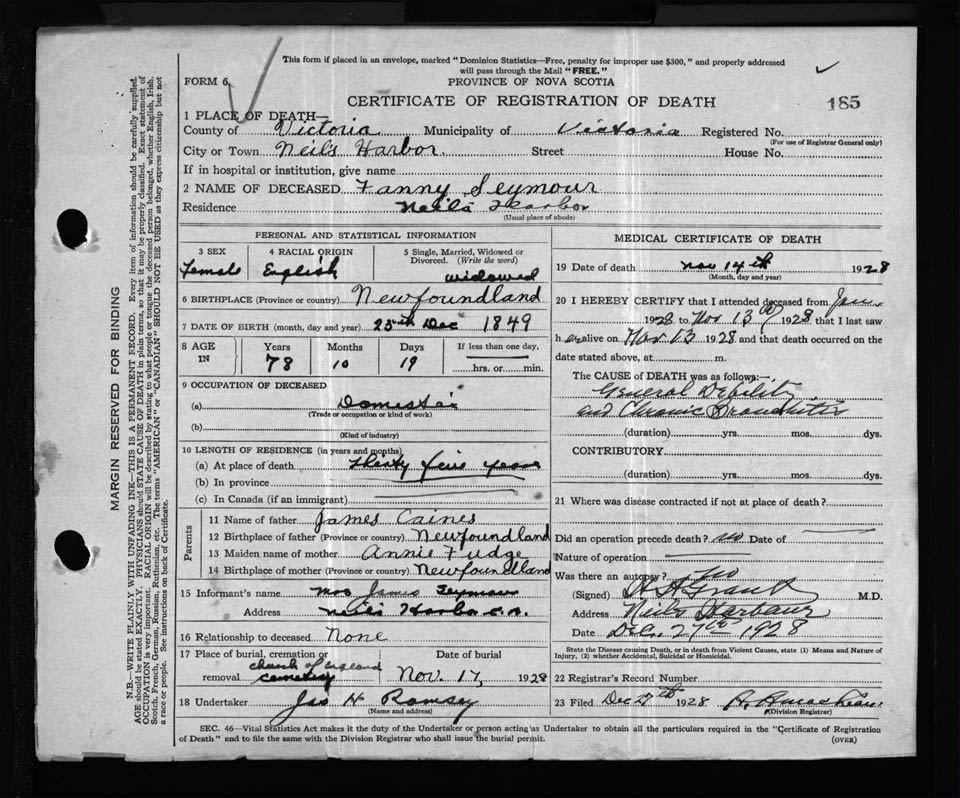 This form if placed in an envelope, marked "Dominion Statistics—Free, penalty for improper use $300," and properly addressed
will pass through the Mail "FREE."
FORM 6.
PROVINCE OF NOVA SCOTIA
CERTIFICATE OF REGISTRATION OF DEATH
185
1 PLACE OF DEATH—
County of Victoria Municipality of Victoria Registered No.
(For use of Registrar General only)
City or Town Neils Harbor. Street House No.
If in hospital or institution, give name
2 NAME OF DECEASED Fanny Seymour
Residence Neils Harbor
(Usual place of abode)
PERSONAL AND STATISTICAL INFORMATION
3 SEX 4 RACIAL ORIGIN 5 Single, Married, Widowed or
Divorced. (Write the word)
Female English widowed
6 BIRTHPLACE (Province or country) Newfoundland
7 DATE OF BIRTH (month, day and year) 25th Dec 1849
8 AGE IN Years Months Days If less than one day,
78 10 19 hrs. or min.
9 OCCUPATION OF DECEASED
(a) Domestic
(Trade or occupation or kind of work)
(b)
(Kind of industry)
10 LENGTH OF RESIDENCE (in years and months)
(a) At place of death thirty five years
(b) In province
(c) In Canada (if an immigrant)
Parents
11 Name of father James Caines
12 Birthplace of father (Province or country) Newfoundland
13 Maiden name of mother Annie Fudge
14 Birthplace of mother (Province or country) Newfoundland
15 Informant's name Mrs James Seymour
Address Neils Harbor
16 Relationship to deceased None
17 Place of burial, cremation or Date of burial
removal church of england
cemetery Nov. 17 1928
18 Undertaker Jas H Ramsey
(Name and address)
MEDICAL CERTIFICATE OF DEATH
19 Date of death Nov 14th 1928
(Month, day and year)
20 I HEREBY CERTIFY that I attended deceased from Jan
1928 to Nov 13th 1928 that I last saw
h er alive on Nov 13 1928 and that death occurred on the
date stated above, at m.
The CAUSE of DEATH was as follows:—
General Debility
and Chronic Bronchitis
(duration) yrs. mos. dys.
CONTRIBUTORY
(duration) yrs. mos. dys.
21 Where was disease contracted if not at place of death?
Did an operation precede death? no Date of
Nature of operation
Was there an autopsy? no
(Signed) Grant M.D.
Address Neils Harbour
Date Dec. 27th 1928
State the Disease causing Death, or in death from Violent Causes, state (1) Means and Nature of
Injury, (2) whether Accidental, Suicidal or Homicidal.
22 Registrar's Record Number
23 Filed Dec 27th 1928
(Division Registrar)
SEC. 46—Vital Statistics Act makes it the duty of the Undertaker or person acting as Undertaker to obtain all the particulars required in the "Certificate of Registration
of Death" and to file the same with the Division Registrar who shall issue the burial permit.
(OVER)
MARGIN RESERVED FOR BINDING
N.B.—WRITE PLAINLY WITH UNFADING INK—THIS IS A PERMANENT RECORD. Every item of information should be carefully supplied.
AGE should be stated EXACTLY. PHYSICIANS should STATE CAUSE OF DEATH in plain terms, so that it may be properly classified. Exact statement of
OCCUPATION is very important. RACIAL ORIGIN will be described by stating to what people or tongue the deceased person belonged, whether English, Irish,
Scotch, French, German, Russian, Ruthenian, etc. The terms "AMERICAN" or "CANADIAN" SHOULD NOT BE USED as they express citizenship but not
a race or people. See instructions on back of Certificate.